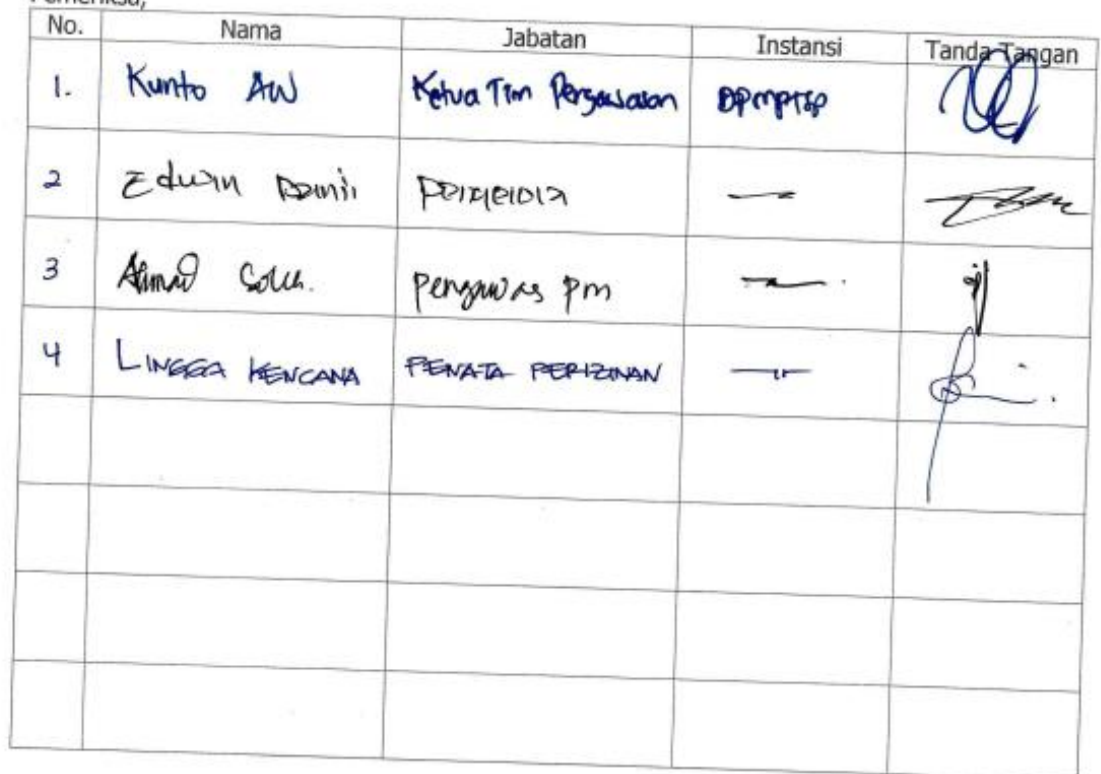 Pemeriksa,
No. Nama Jabatan Instansi Tanda Tangan
1. Kunto AW Ketua Tim Pengawasan DPMPTSP
2 Edwin
3 Ahmad pengawas pm
4 LINGGA KENCANA PENATA PERIZINAN